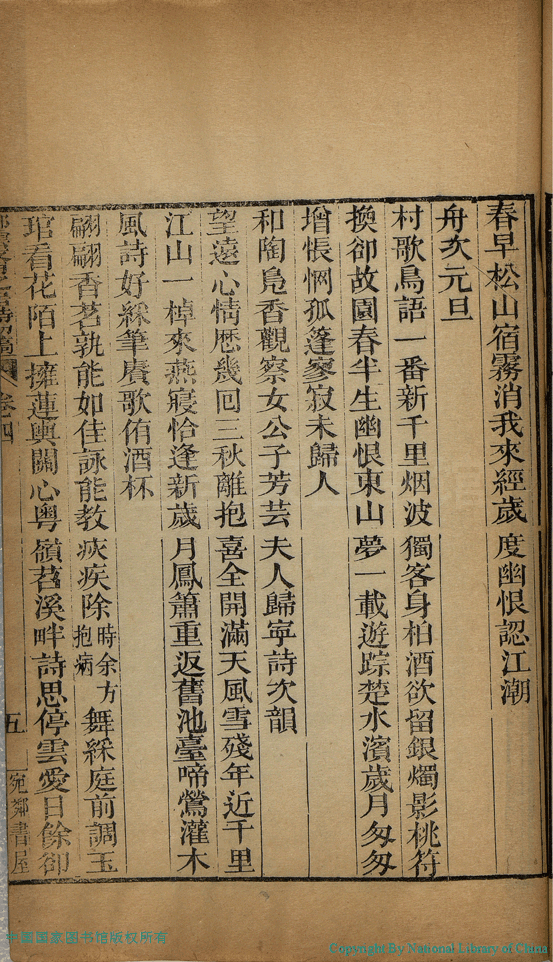 春早松山宿霧消我來經歲度幽恨認江潮
舟次元旦
村歌鳥語一番新千里烟波獨客身柏酒欲留銀燭影桃符
換卻故園春半生幽恨東山夢一載遊踪楚水濱歲月匆匆
增悵惘孤篷寥寂未歸人
和陶鳧香觀察女公子芳芸夫人歸寧詩次韻
望遠心情歷幾回三秋離抱喜全開滿天風雪殘年近千里
江山一棹來燕寢恰逢新歲月鳳簫重返舊池臺啼鶯灌木
風詩好綵筆賡歌侑酒杯
翩翩香茗孰能如佳詠能教疢疾除時余方抱病舞綵庭前調玉
琯看花陌上擁蓮輿關心粵嶺苕溪畔詩思停雲愛日餘卻
卷四
五
宛鄰書屋
中国国家图书馆版权所有
Copyright By National Library of China